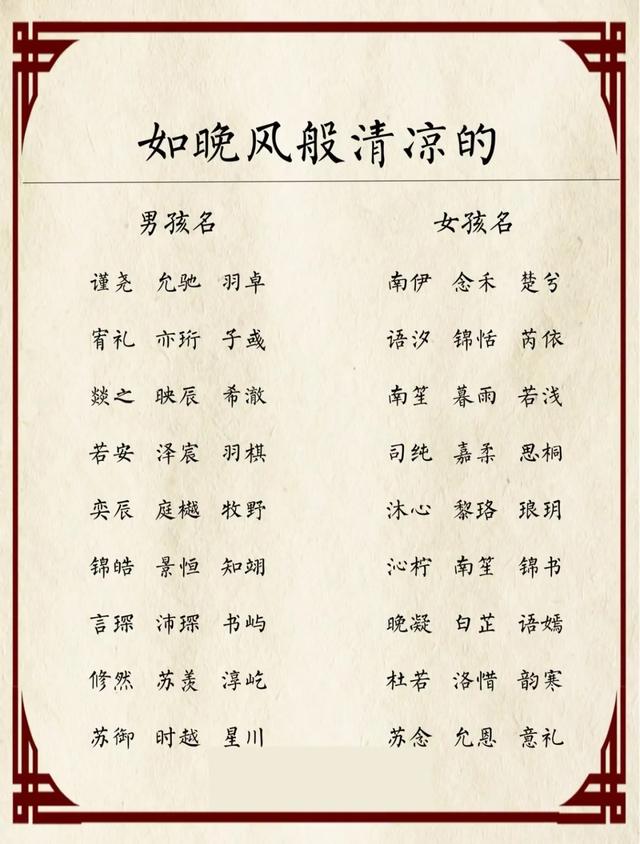 如晚风般清凉的
男孩名 女孩名
谨尧 允驰 羽卓 南伊 念禾 楚兮
宥礼 亦珩 子彧 语汐 锦恬 芮依
燚之 映辰 希澈 南笙 暮雨 若浅
若安 泽宸 羽棋 司纯 嘉柔 思桐
奕辰 庭樾 牧野 沐心 黎珞 琅玥
锦皓 景恒 知翊 沁柠 南笙 锦书
言琛 沛琛 书屿 晚凝 白芷 语嫣
修然 苏羡 淳屹 杜若 洛惜 韵寒
苏御 时越 星川 苏念 允恩 意礼